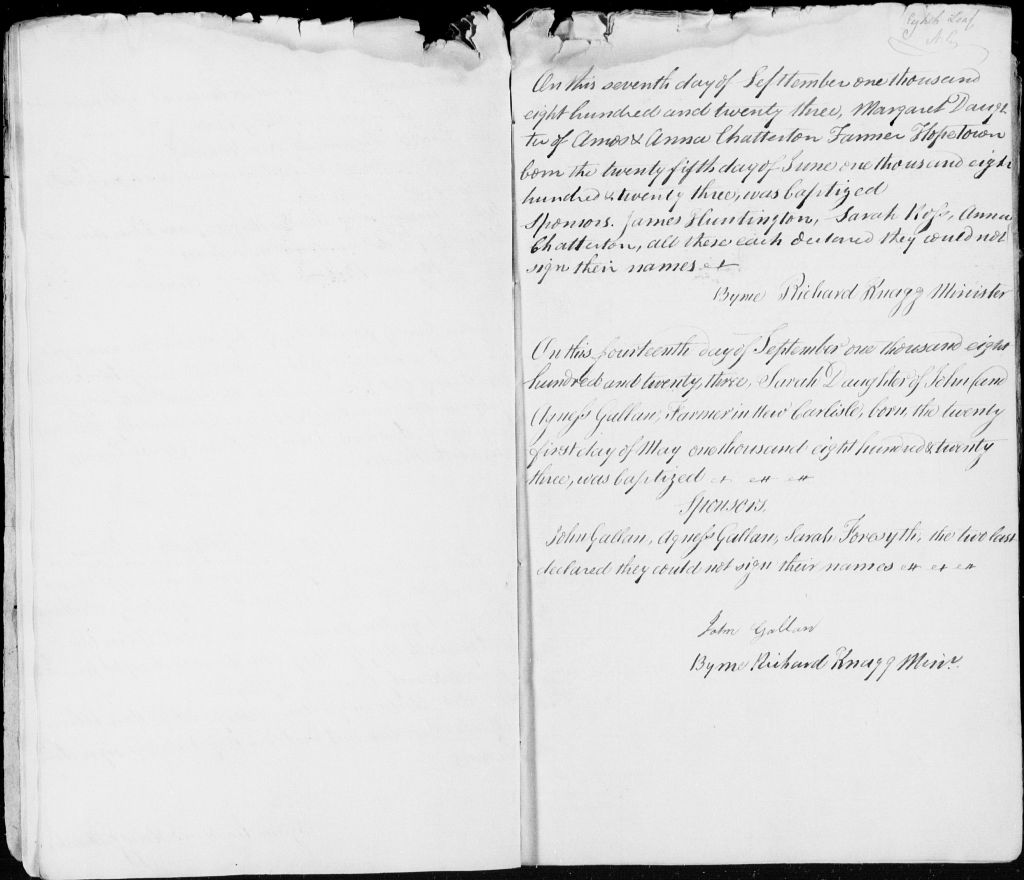 Eighth Leaf
On this seventh day of September one thousand
eight hundred and twenty three, Margaret Daugh-
ter of Amos & Anna Chatterton Farmer Hopetown
born the twenty fifth day of June one thousand eight
hundred & twenty three, was baptized
Sponsors. James Huntington, Sarah Ross, Anna
Chatterton, all these each declared they could not
sign their names
By me Richard Knagg Minister
On this fourteenth day of September one thousand eight
hundred and twenty, three, Sarah Daughter of John and
Agness Gallan, Farmer in New Carlisle, born, the twenty
first day of May one thousand eight hundred & twenty
three, was baptized
Sponsors.
John Gallan, Agness Gallan, Sarah Forsyth, the two last
declared they could not sign their names
John Gallan
By me Richard Knagg Minr.